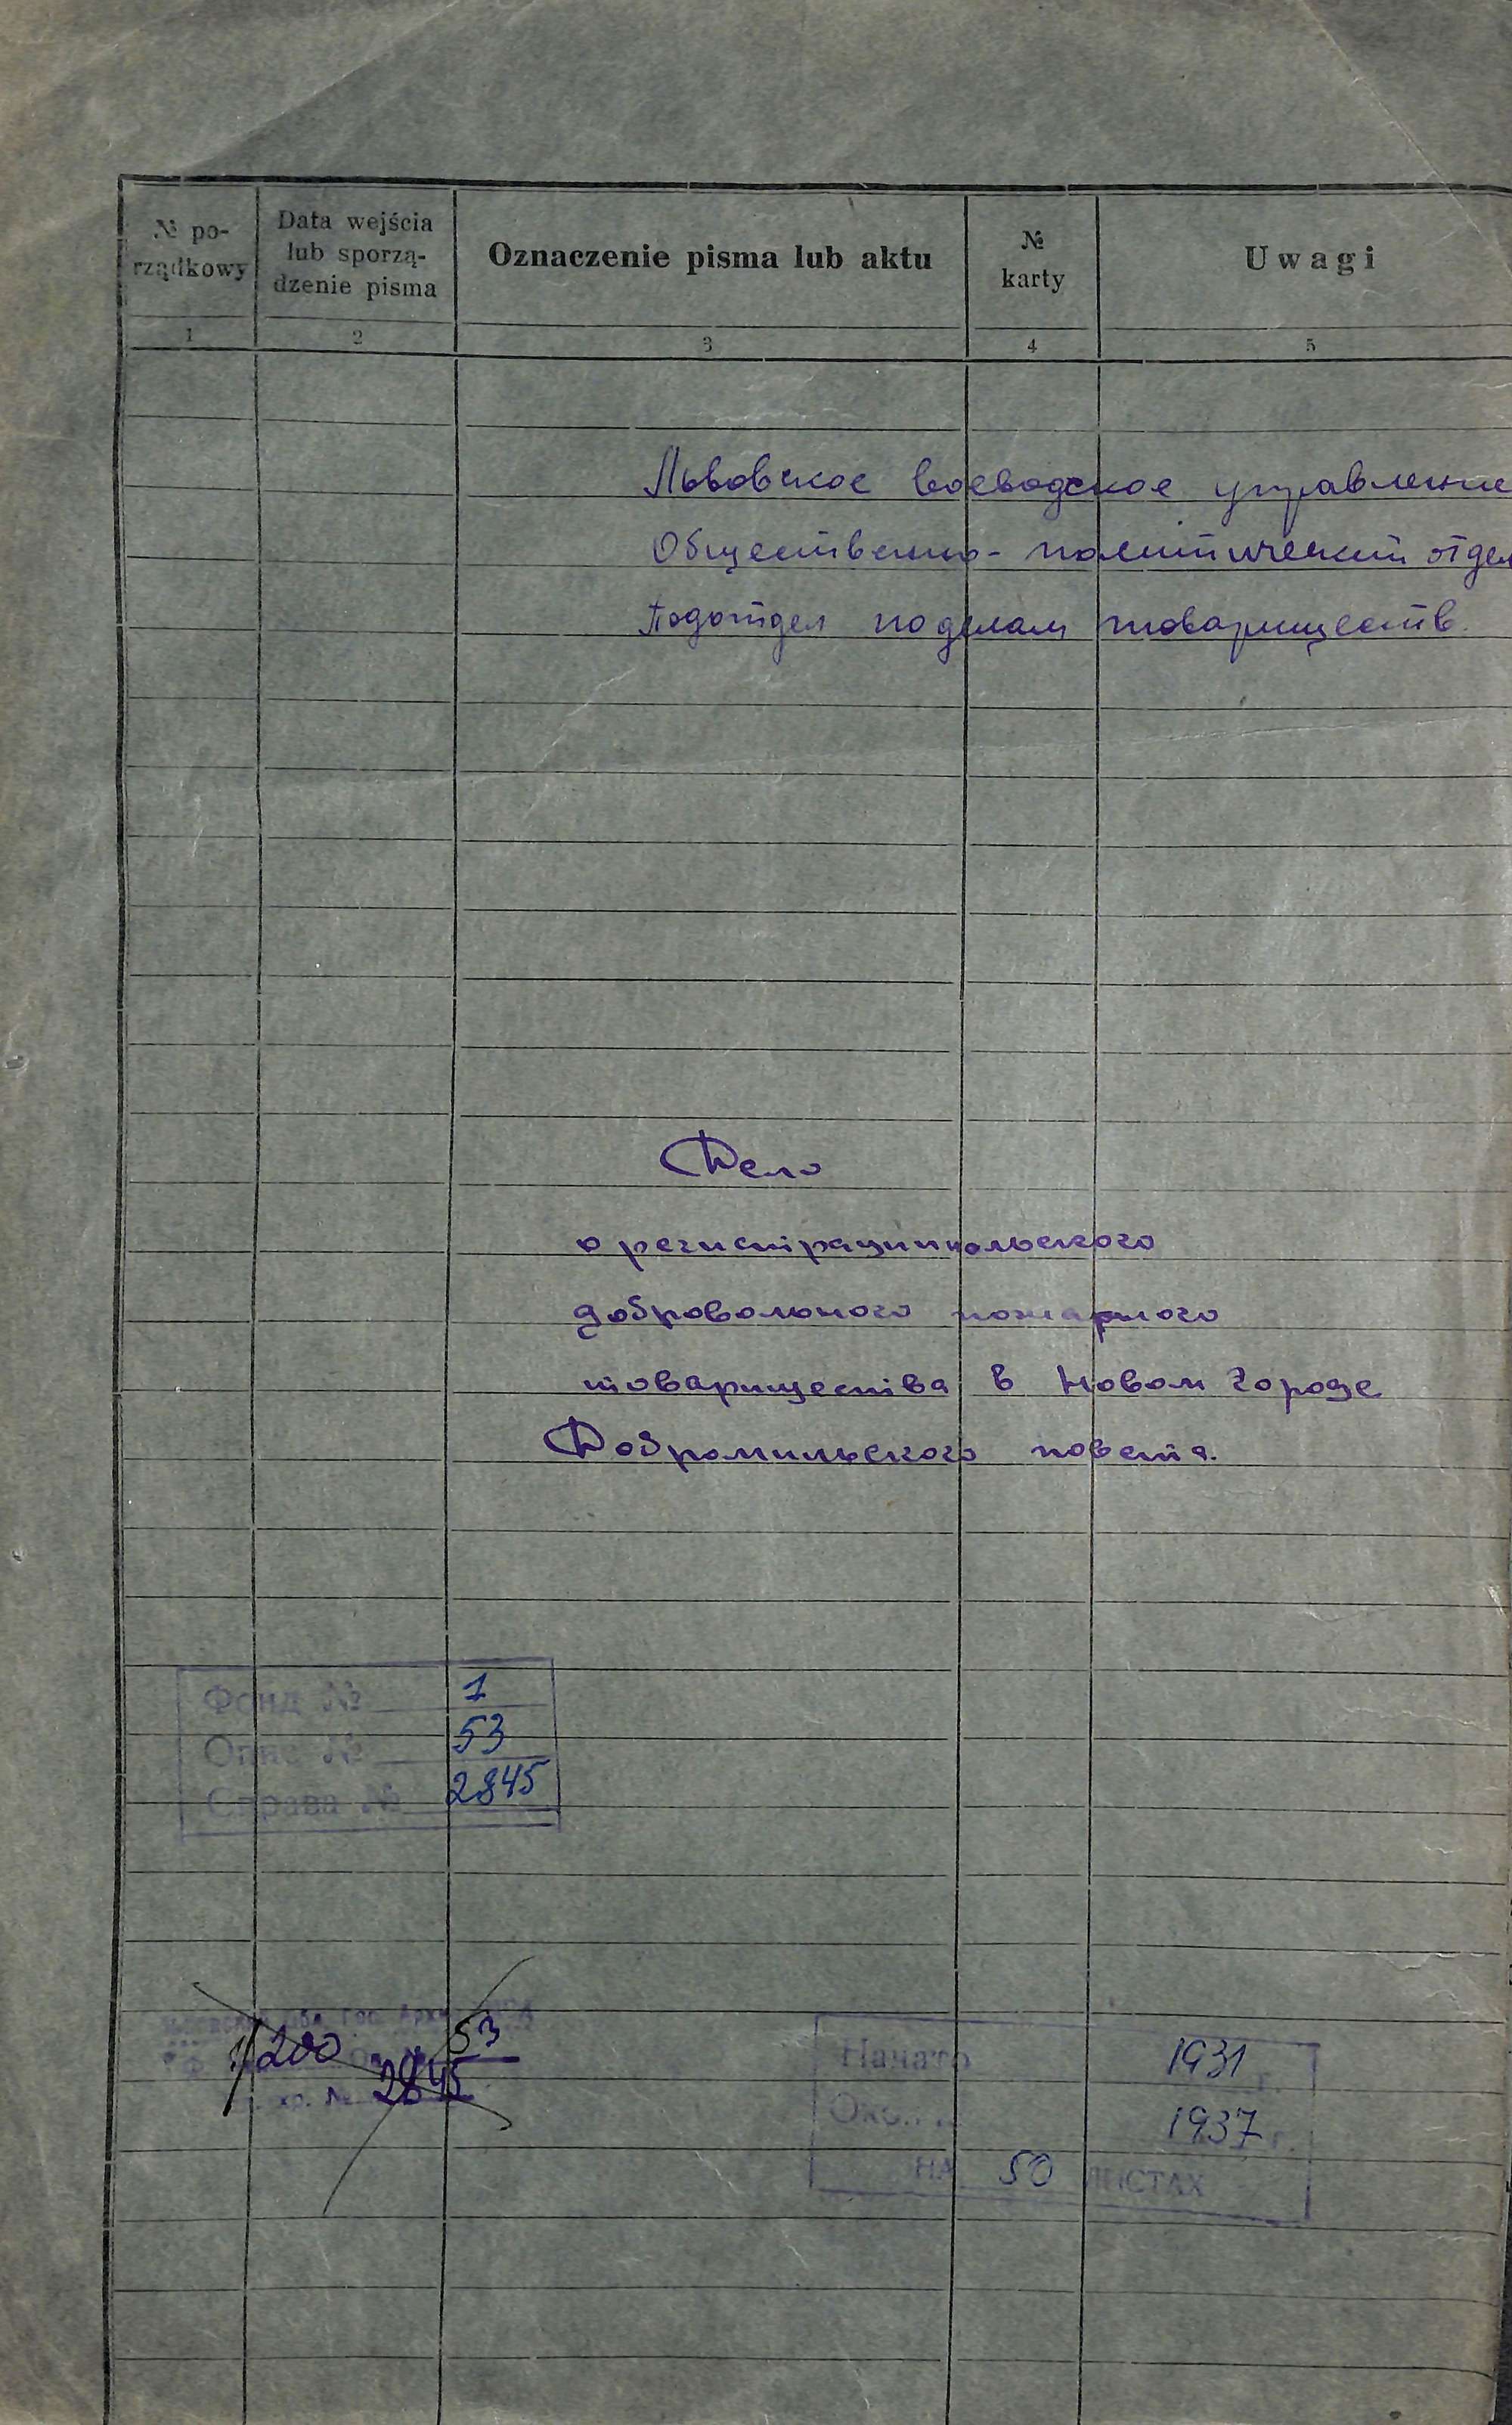 № po-
rządkowy
Data wejścia
lub sporzą-
dzenie pisma
Oznaczenie pisma lub aktu
№
karty
Uwagi
1 2 3 4 5
Львовское воеводское управление
Общественно-политический отдел
Подотдел по делам товариществ.
Дело
о регистрации польского
добровольного пожарного
товарищества в Новом Городе
Добромильского повета.
Фонд № 1
Опис № 53
Справа № 2845
обл. Гос. Арх
1/200 53
хр. № 2845
Начато 1931 г.
1937 г.
НА 50 ЛИСТАХ